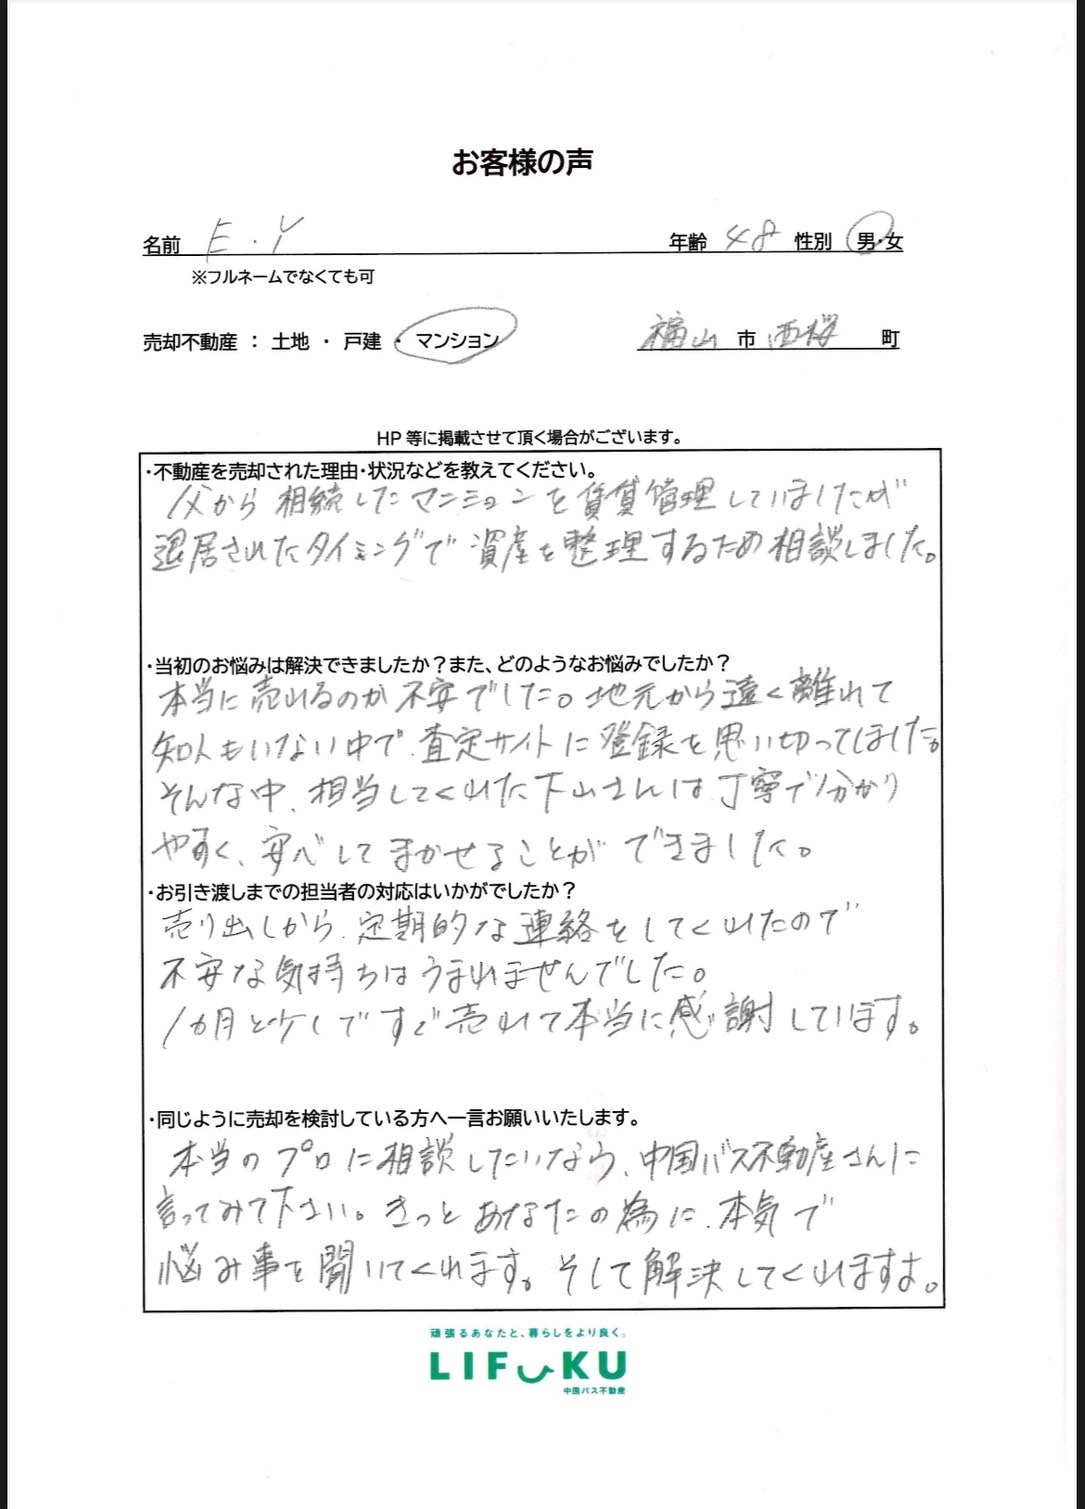 お客様の声
名前 E.Y 年齢 48 性別 男・女
※フルネームでなくても可
売却不動産 : 土地 ・ 戸建 ・ マンション 福山 市 西桜 町
HP 等に掲載させて頂く場合がございます。
・不動産を売却された理由・状況などを教えてください。
父から相続したマンションを賃貸管理していましたが
退居されたタイミングで資産を整理するため相談しました。
・当初のお悩みは解決できましたか?また、どのようなお悩みでしたか?
本当に売れるのか不安でした。地元から遠く離れて
知人もいない中で、査定サイトに登録を思い切ってしました。
そんな中、担当してくれた下山さんは丁寧で分かり
やすく、安心してまかせることができました。
・お引き渡しまでの担当者の対応はいかがでしたか?
売り出しから、定期的な連絡をしてくれたので
不安な気持ちはうまれませんでした。
1カ月と少しですぐ売れて本当に感謝しています。
・同じように売却を検討している方へ一言お願いいたします。
本当のプロに相談したいなら、中国バス不動産さんに
言ってみて下さい。きっとあなたの為に、本気で
悩み事を聞いてくれます。そして解決してくれますよ。
頑張るあなたと、暮らしをより良く。
LIFUKU
中国バス不動産